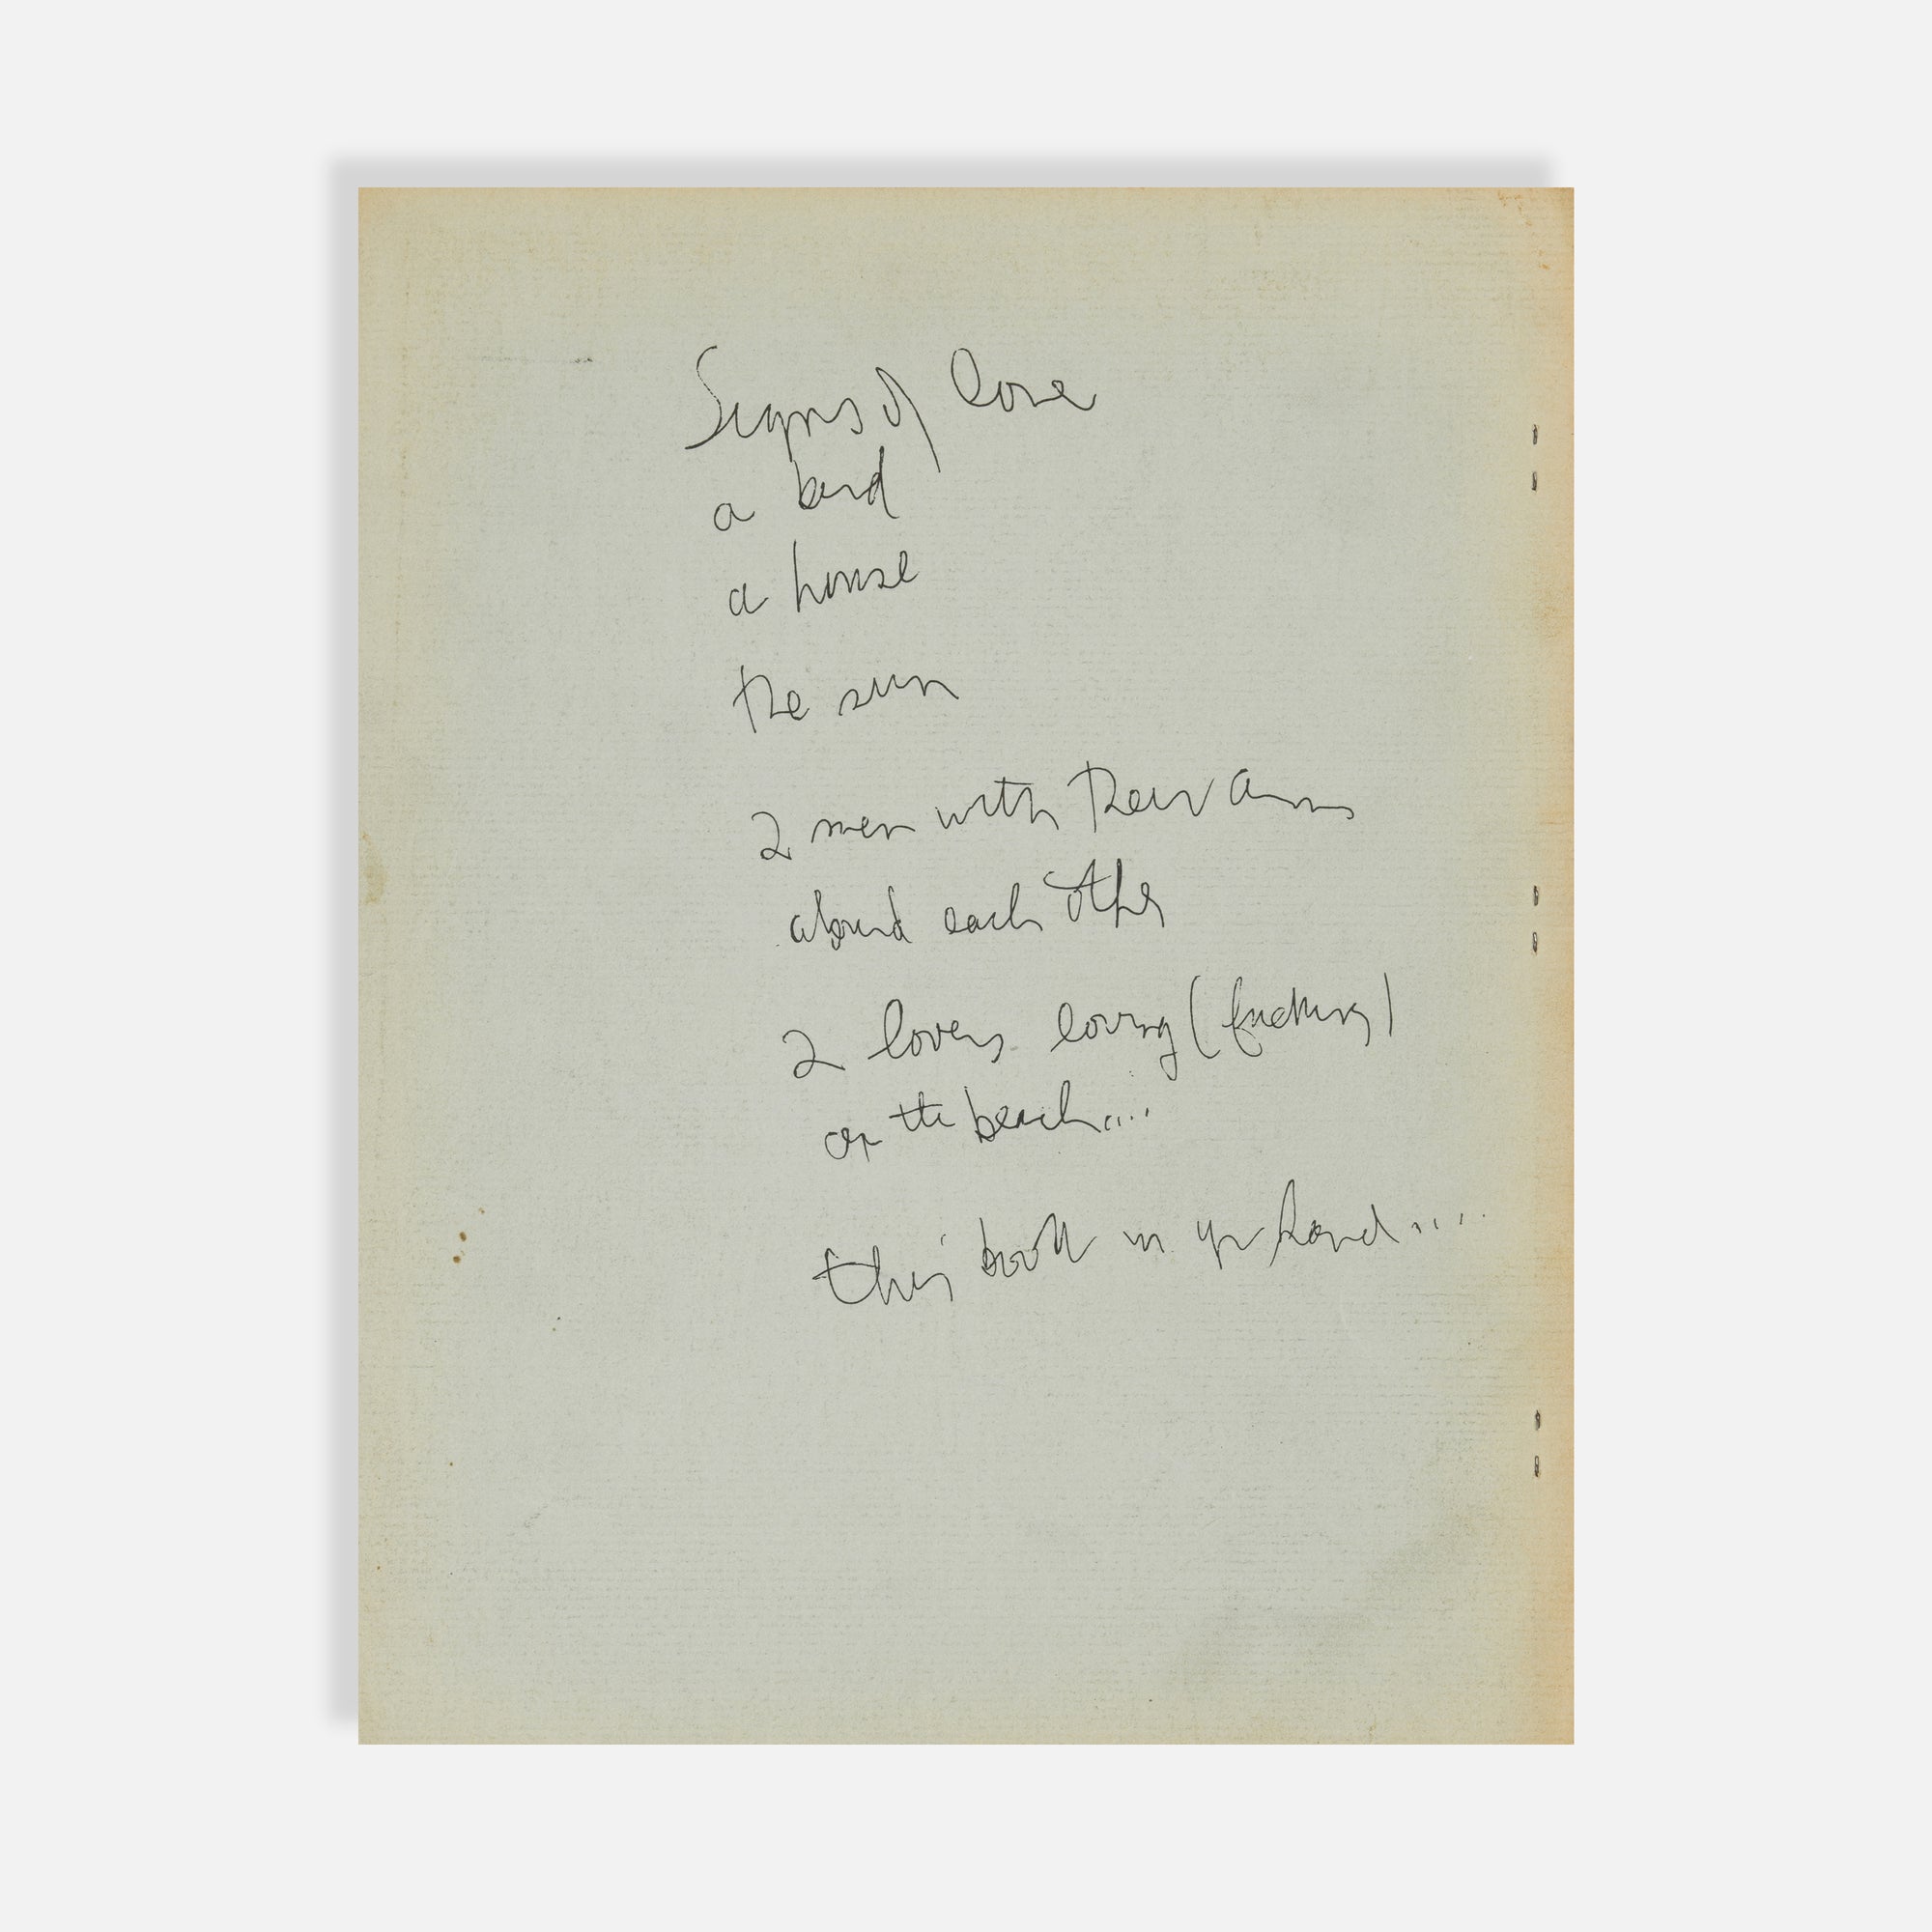 Signs of love
a bird
a house
the sun
2 men with their arms
around each other
2 lovers loving (fucking)
on the beach....
this book in yr hand....